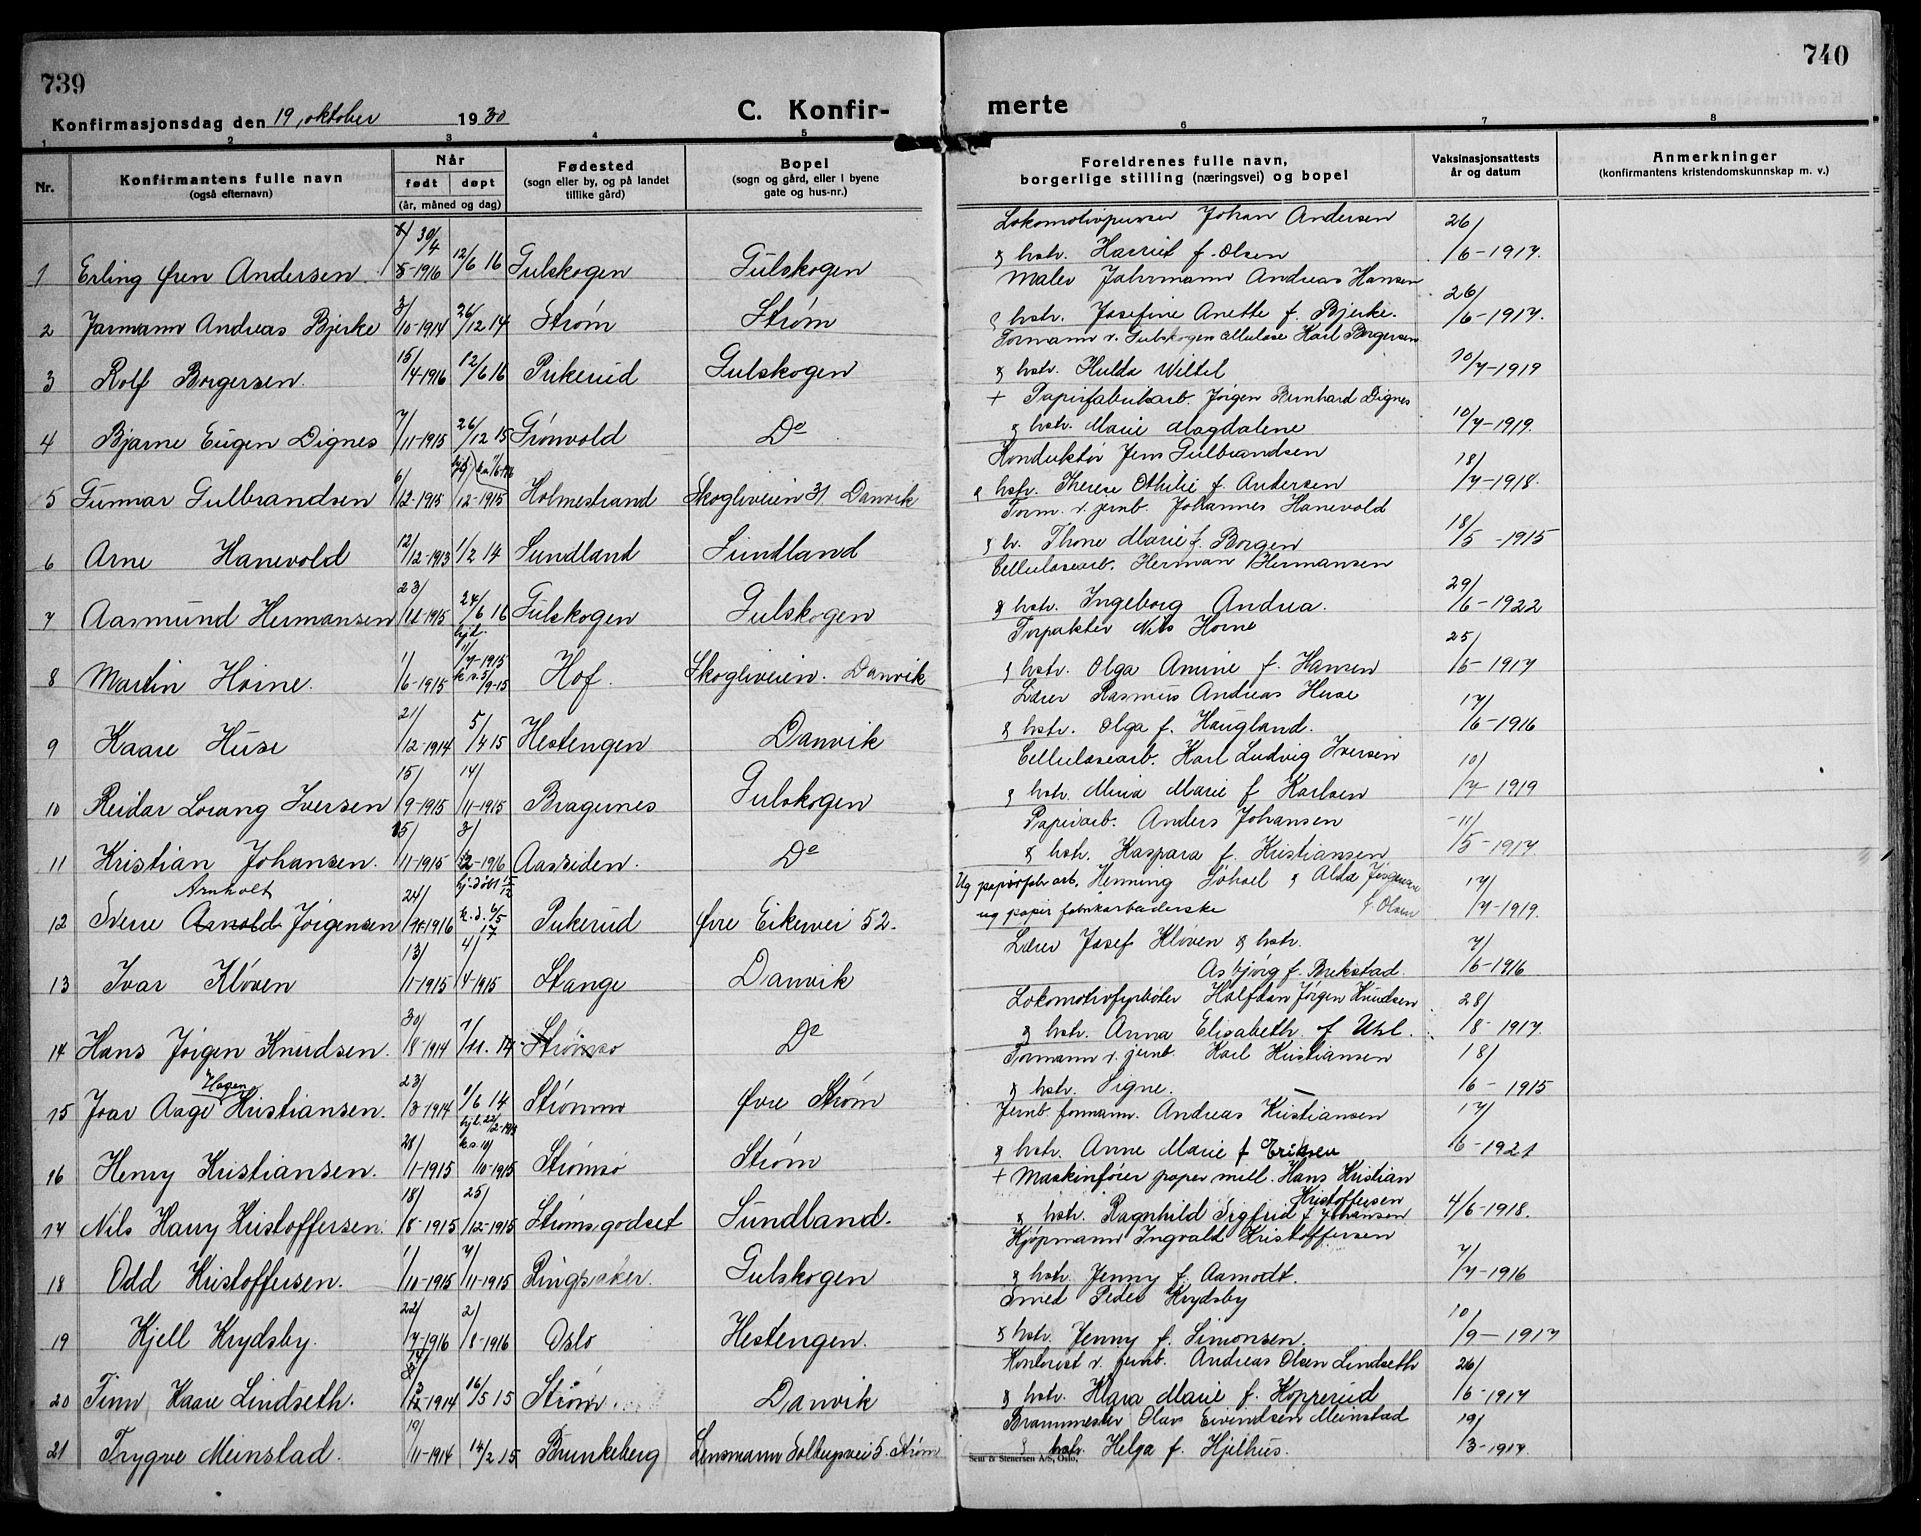 739
740
Konfirmasjonsdag den 19, oktober 1930
C. Konfir-
merte
1 2 3 4 5 6 7 8
Nr.
Konfirmantens fulle navn
(også efternavn)
Når
født døpt
(år, måned og dag)
Fødested
(sogn eller by, og på landet
tillike gård)
Bopel
(sogn og gård, eller i byene
gate og hus-nr.)
Foreldrenes fulle navn,
borgerlige stilling (næringsvei) og bopel
Vaksinasjonsattests
år og datum
Anmerkninger
(konfirmantens kristendomskunnskap m. v.)
Lokomotivpusser Johan Andersen
1 Erling Øren Andersen. 30/4 -1916 12/6 16 Gulskogen Gulskogen & hstr. Harriet f. Olsen 26/6-1917.
Maler Jahrmann Andreas Hansen
2 Jarmann Andreas Bjerke 3/10-1914 26/12 14 Strøm Strøm & hstr. Josefine Anette f. Bjerke. 26/6-1917.
Formann v. Gulskogen Cellulose Karl Borgersen
3 Rolf Borgersen. 15/4-1916 12/6 16 Pukerud Gulskogen & hstr. Hulda Wiltel 10/7-1919
+ Papirfabrikarb. Jørgen Bernhard Dignes
4 Bjarne Eugen Dignes 7/11-1915 26/12 15 Grønvold Do & hstr. Marie Magdalene 10/7-1919.
Konduktør Jens Gulbrandsen
5 Gunnar Gulbrandsen 6/12-1915 /12-1915 Holmestrand Skogliveien 31 Danvik & hstr. Therese Othilie f. Andersen 18/7-1918.
Form. v. jernb. Johannes Hanevold
6 Arne Hanevold 12/12-1913 1/2 14 Sundland Sundland & h. Thone Marie f. Borgen 18/5-1915
Cellulosearb. Herman Hermansen
7 Aasmund Hermansen 23/11-1915 24/6 16 Gulskogen Gulskogen & hstr. Ingeborg Andrea. 29/6-1922
Torpakter Nils Horne
8 Martin Horne. 1/6-1915 hjd. 11/7-1915 k.s. 5/9-15 Hof. Skogliveien. Danvik & hstr. Olga Amine f. Hansen 25/5-1917
Lærer Rasmus Andreas Huse
9 Kaare Huse 21/12-1914 5/4 15 Hestengen Danvik & hstr. Olga f. Haugland. 17/6-1916
Cellulosearb. Karl Ludvig Iversen
10 Reidar Lorang Iversen 15/9-1915 14/11-1915 Bragernes Gulskogen & hstr. Mina Marie f Karlsen 10/7-1919
Papirarb. Anders Johansen
11 Kristian Johansen. 15/11-1915 3/2-1916 Aassiden. Do & hstr. Kaspara f. Kristiansen 11/5-1917
Arnholt
Ug papirfabr arb. Henning Johsel & Alda Jørgensen
12 Sverre Arnold Jørgensen 24/11-1916 hj. døbt 15/12 k.d. 6/5 17 Pukerud Øvre Eikervei 52. ug papir fabrikarbaderske f. Olsen 17/7-1919.
Lærer Josef Kløven & hstr.
13 Ivar Kløven 13/1-1915 4/4-1915 Stange Danvik Asbjørg f. Brekstad. 7/6-1916
Lokomotivfyrbøter Halfdan Jørgen Knudsen
14 Hans Jørgen Knudsen. 30/8-1914 1/11. 14 Strømsø Do & hstr. Anna Elisabeth f Uhl. 28/8-1917.
Formann v. jernb. Karl Kristiansen
Hagen
15 Ivar Aage Kristiansen. 23/3-1914 1/6 14 Strømm Øvre Strøm & hstr. Signe. 18/6-1915
Jernb. formann. Andreas Kristiansen
16 Henry Kristiansen. 28/1-1915 /10-1915 Strømsø Strøm & hstr. Anne Marie f Eriksen 17/6-1921
+ Maskinfører paper mill. Hans Kristian Kristoffersen
17 Nils Harry Kristoffersen. 18/8-1915 25/12-1915 Strømsgodset Sundland. & hstr. Ragnhild Sigfrid f Johansen 4/6-1918.
Kjøpmann Ingvald Kristoffersen
18 Odd Kristoffersen. 1/10-1915 7/11-1915 Ringsaker. Gulskogen & hstr. Jenny f. Aamodt. 7/7-1916
Smed Peder Krydsby
19 Kjell Krydsby. 22/7-1916 2/8-1916 Oslo Hestengen. & hstr. Jenny f. Simonsen. 10/9-1917
Kontorist v. jernb. Andreas Olsen Lindseth
20 Finn Kaare Lindseth. -1914 16/5 15 Strøm Danvik & hstr. Klara Marie f. Kopperud 26/6-1917
Brannmester Olav Eivindsen Meinstad
21 Trygve Meinstad. 19/11-1914 14/2 15 Brunkeberg Lensmann Solbergsvei 5. Strøm & hstr. Helga f. Kjelhus. 19/3-1917.
Sem & Stenersen A/S, Oslo.